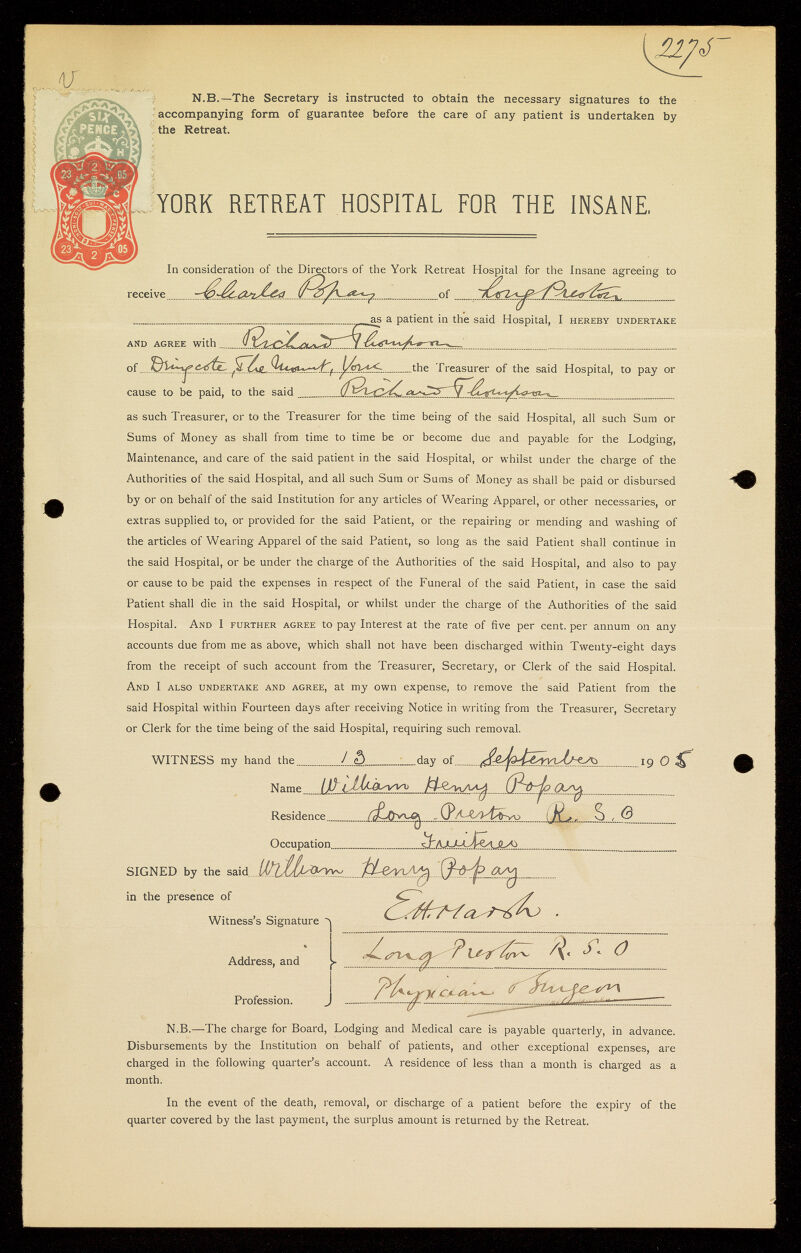 2275
V
N.B.—The Secretary is instructed to obtain the necessary signatures to the
accompanying form of guarantee before the care of any patient is undertaken by
the Retreat.
SIX
PENCE
H
23 2 05
23 2 05
YORK RETREAT HOSPITAL FOR THE INSANE.
In consideration of the Directors of the York Retreat Hospital for the Insane agreeing to
receive Charles Popay of Long Preston
as a patient in the said Hospital, I HEREBY UNDERTAKE
AND AGREE with Richard Thompson
of Dringcote, The Mount, York the Treasurer of the said Hospital, to pay or
cause to be paid, to the said Richard Thompson
as such Treasurer, or to the Treasurer for the time being of the said Hospital, all such Sum or
Sums of Money as shall from time to time be or become due and payable for the Lodging,
Maintenance, and care of the said patient in the said Hospital, or whilst under the charge of the
Authorities of the said Hospital, and all such Sum or Sums of Money as shall be paid or disbursed
by or on behalf of the said Institution for any articles of Wearing Apparel, or other necessaries, or
extras supplied to, or provided for the said Patient, or the repairing or mending and washing of
the articles of Wearing Apparel of the said Patient, so long as the said Patient shall continue in
the said Hospital, or be under the charge of the Authorities of the said Hospital, and also to pay
or cause to be paid the expenses in respect of the Funeral of the said Patient, in case the said
Patient shall die in the said Hospital, or whilst under the charge of the Authorities of the said
Hospital. AND I FURTHER AGREE to pay Interest at the rate of five per cent. per annum on any
accounts due from me as above, which shall not have been discharged within Twenty-eight days
from the receipt of such account from the Treasurer, Secretary, or Clerk of the said Hospital.
AND I ALSO UNDERTAKE AND AGREE, at my own expense, to remove the said Patient from the
said Hospital within Fourteen days after receiving Notice in writing from the Treasurer, Secretary
or Clerk for the time being of the said Hospital, requiring such removal.
WITNESS my hand the 13 day of September 1905
Name William Henry Popay
Residence Long Preston R. S. O
Occupation Fruiterer
SIGNED by the said William Henry Popay
in the presence of
Witness's Signature E.H. Marsh.
Address, and Long Preston R. S. O
Profession. Physician & Surgeon
N.B.—The charge for Board, Lodging and Medical care is payable quarterly, in advance.
Disbursements by the Institution on behalf of patients, and other exceptional expenses, are
charged in the following quarter's account. A residence of less than a month is charged as a
month.
In the event of the death, removal, or discharge of a patient before the expiry of the
quarter covered by the last payment, the surplus amount is returned by the Retreat.